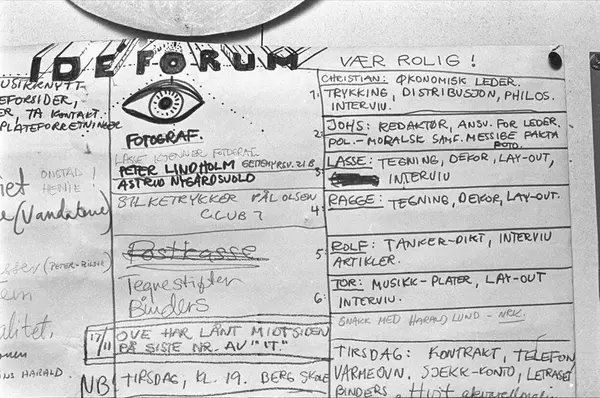 IDÉFORUM
USIKKNYTT
EFORSIDER,
ER, TA KONTAKT.
PLATEFORRETNINGER
ONSTAD /
HENIE
(Vandatone)
(PETER-BILDER)
alitet.
NS HARALD.
FOTOGRAF.
LASSE KJENNER FOTOGRAF.
PETER LINDHOLM GEITEMYRSV. 21 B
ASTRID NYGÅRDSVOLD
SILKETRYKKER PÅL OLSEN
CLUB 7
Postkasse
Tegnestifter
Binders
17/11 OVE HAR LÅNT MIDTSIDEN
PÅ SISTE NR. AV "IT."
NB! TIRSDAG, KL. 19. BERG SKOLE
VÆR ROLIG !
CHRISTIAN: ØKONOMISK LEDER.
1. TRYKKING, DISTRIBUSJON, PHILOS.
INTERVIU.
2. JOHS: REDAKTØR, ANSV. FOR LEDER.
POL. - MORALSK SAMF. MESSIGE FAKTA
FOTO.
3. LASSE: TEGNING, DEKOR, LAY-OUT,
INTERVIU
4. RAGGE: TEGNING, DEKOR, LAY-OUT.
5. ROLF: TANKER-DIKT, INTERVIU
ARTIKLER.
6: TOR: MUSIKK-PLATER, LAY-OUT
INTERVIU.
SNAKK MED HARALD LUND - NRK.
TIRSDAG: KONTRAKT, TELEFON
VARMEOVN. SJEKK-KONTO, LETRASET
BINDERS